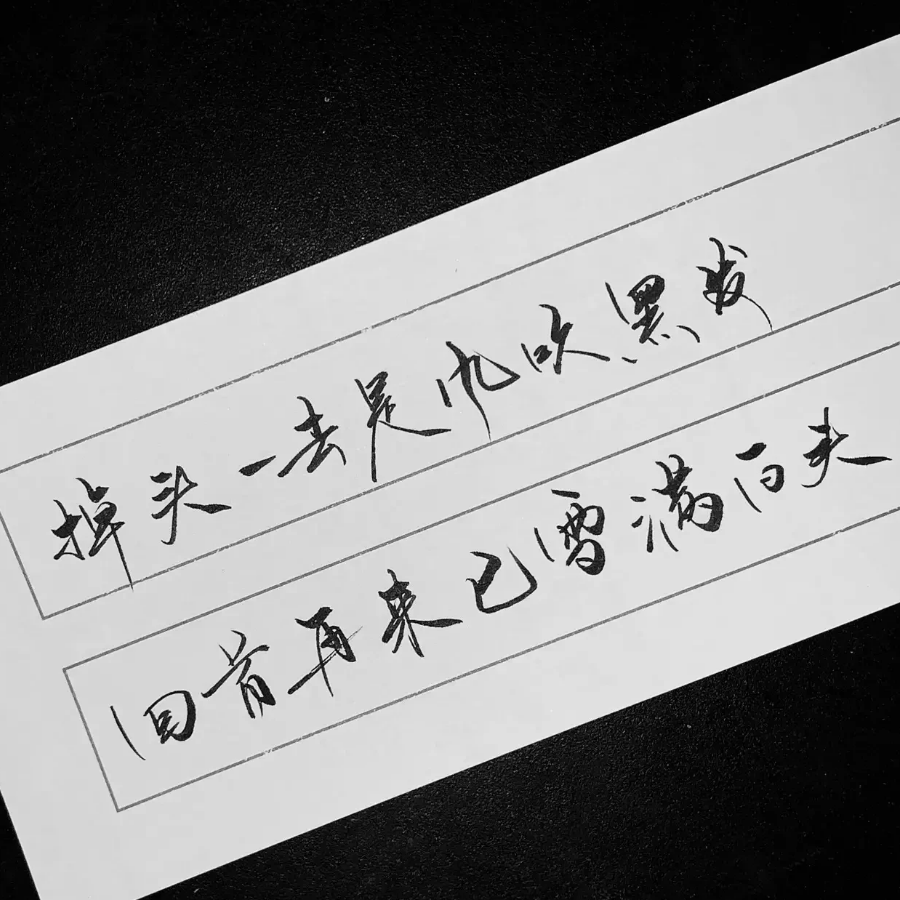 掉头一去是风吹黑发
回首再来已雪满百头